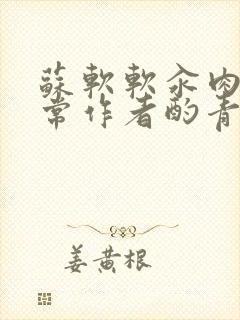 蘇軟軟汆肉
常作者酌青
姜黄根